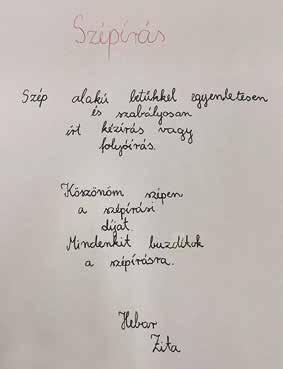 Szépírás
Szép alakú betűkkel egyenletesen
és szabályosan
írt kézírás vagy
folyóírás.
Köszönöm szépen
a szépírási
díjat.
Mindenkit buzdítok
a szépírásra.
Hebar
Zita